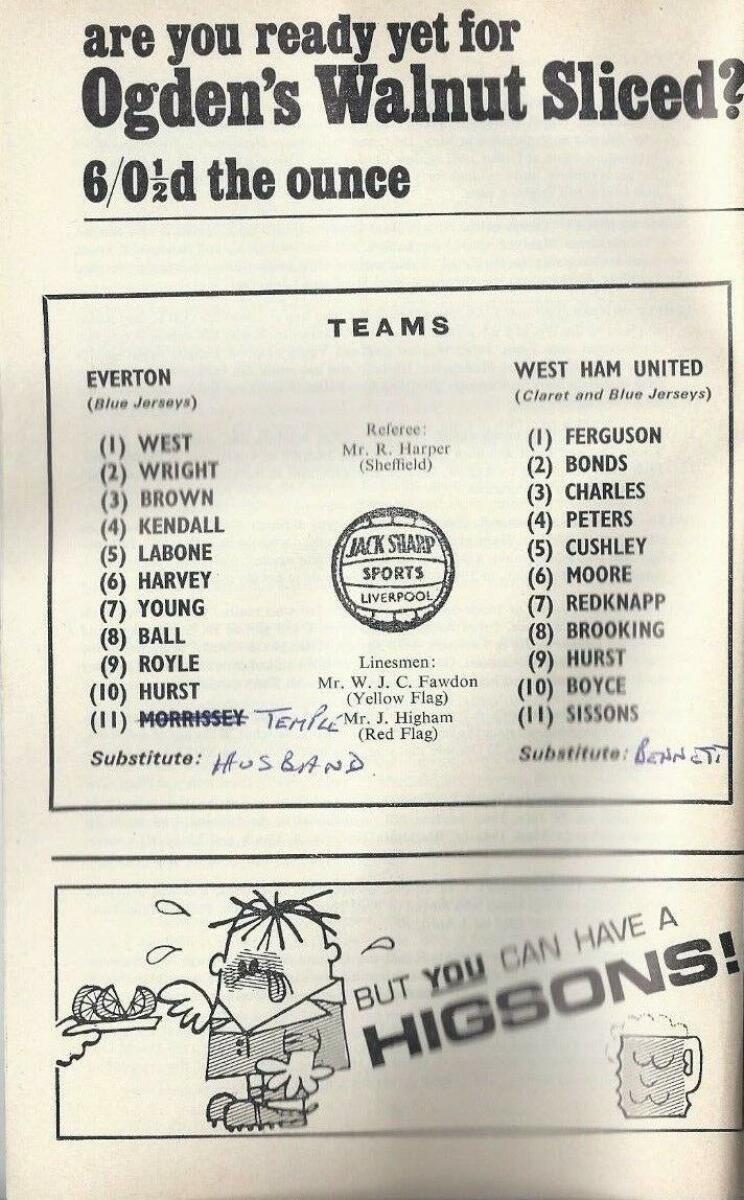 are you ready yet for
Ogden's Walnut Sliced?
6/0½d the ounce
TEAMS
EVERTON
(Blue Jerseys)
(1) WEST
(2) WRIGHT
(3) BROWN
(4) KENDALL
(5) LABONE
(6) HARVEY
(7) YOUNG
(8) BALL
(9) ROYLE
(10) HURST
(11) MORRISSEY TEMPLE
Substitute: HUSBAND
Referee:
Mr. R. Harper
(Sheffield)
JACK SHARP
SPORTS
LIVERPOOL
Linesmen:
Mr. W. J. C. Fawdon
(Yellow Flag)
Mr. J. Higham
(Red Flag)
WEST HAM UNITED
(Claret and Blue Jerseys)
(1) FERGUSON
(2) BONDS
(3) CHARLES
(4) PETERS
(5) CUSHLEY
(6) MOORE
(7) REDKNAPP
(8) BROOKING
(9) HURST
(10) BOYCE
(11) SISSONS
Substitute: BENNETT
BUT YOU CAN HAVE A
HIGSONS!